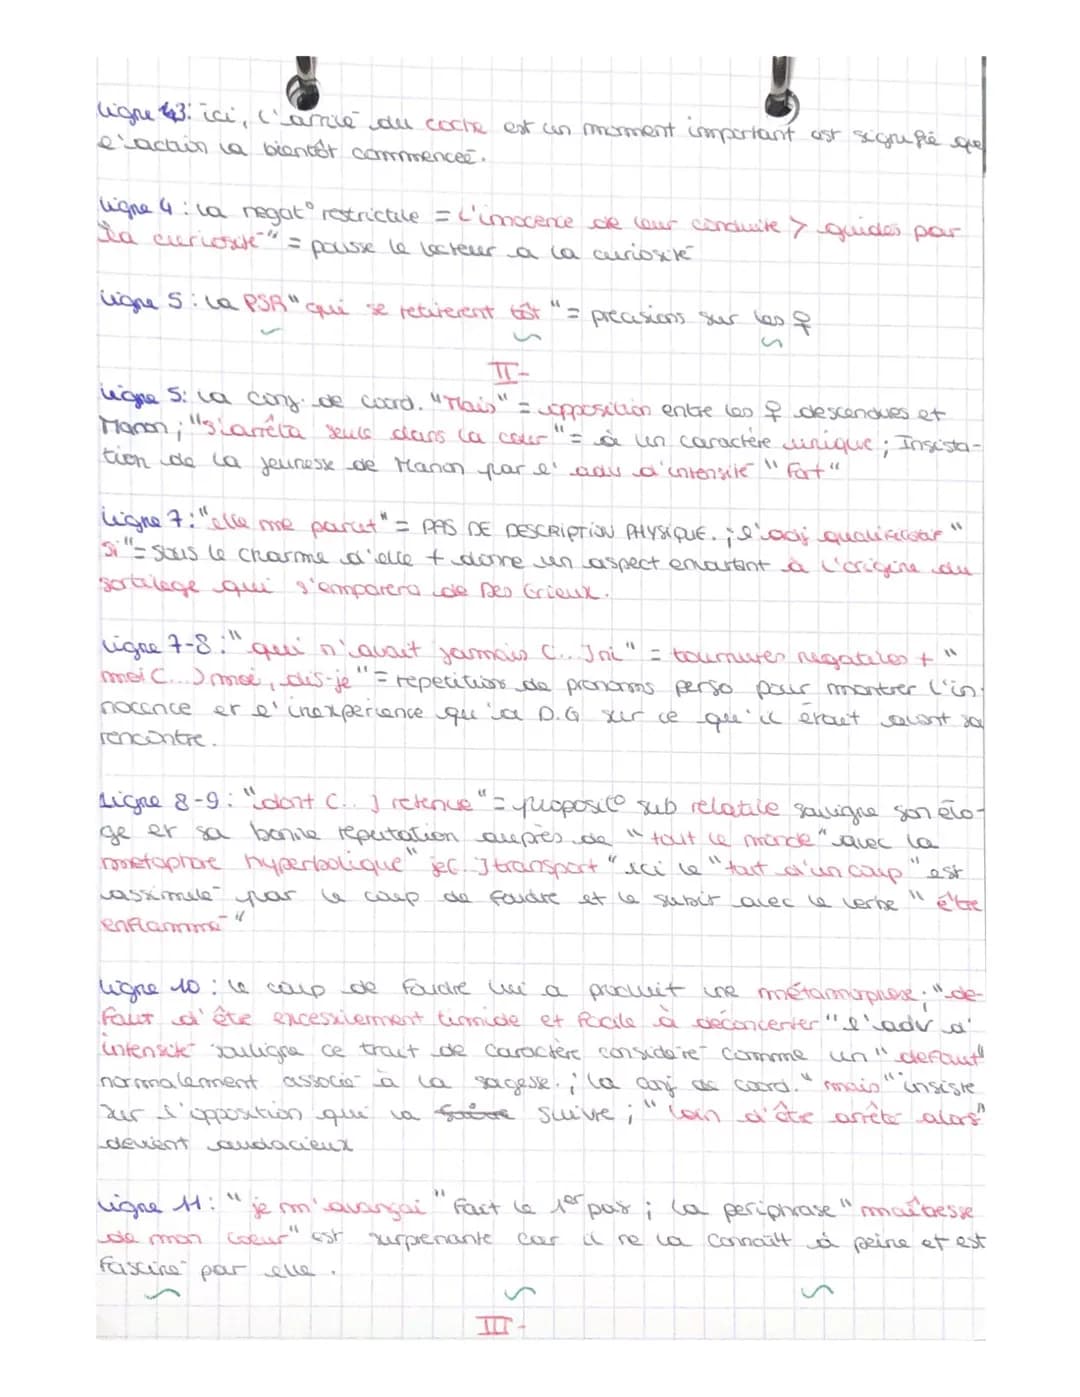 ligne 3: ici, l'arrivé du coche est un moment important est signifie que
l'action va bientôt commencee.
ligne 4 : la negat° restrictive = L'innocence de leur conduite > guidés par
"la curiosité" = pousse le lecteur a la curiosité
ligne 5 : la PSR "qui se retirerent tôt" = precisions sur les ♀
II-
ligne 5: la conj. de coord. "Mais" = opposition entre les ♀ descendues et
Manon ; "s'arrêta seule dans la cour" = à un caractère unique ; Insista-
tion de la jeunesse de Manon par l'adv d'intensité "fort"
ligne 7 : "elle me parut" = PAS DE DESCRIPTION PHYSIQUE. ; l'adj qualificatif "
si" = sous le charme d'elle + donne un aspect envoutant à l'origine du
sortilege qui s'emparera de Des Grieux.
ligne 7-8 : "qui n'avait jamais (...) ni" = tournures negatives + "
moi (...) moi, dis-je" = repetition de pronoms perso pour montrer l'in-
nocence et l'inexperience qu'a D.G sur ce qu'il était avant sa
rencontre.
Ligne 8-9 : "dont (...) retenue" = proposit° sub relative souligne son élo-
ge et sa bonne réputation auprès de "tout le monde" avec la
métaphore hyperbolique "je (...) transport" ici le "tout d'un coup" est
assimilé par le coup de foudre et le subit avec le verbe "être
enflammé"
ligne 10 : le coup de foudre lui a produit une métamorphose ; "de-
faut d'être excessivement timide et facile à déconcerter" l'adv d'
intensité souligne ce trait de caractère considéré comme un "defaut"
normalement associé à la sagesse. ; la conj de coord. "mais" insiste
sur l'opposition qui va suivre ; "loin d'être arrêté alors"
devient audacieux
ligne 11 : "je m'avançai" fait le 1er pas ; la periphrase "maîtresse
de mon coeur" est surprenante car il ne la connaît à peine et est
fasciné par elle.
III-